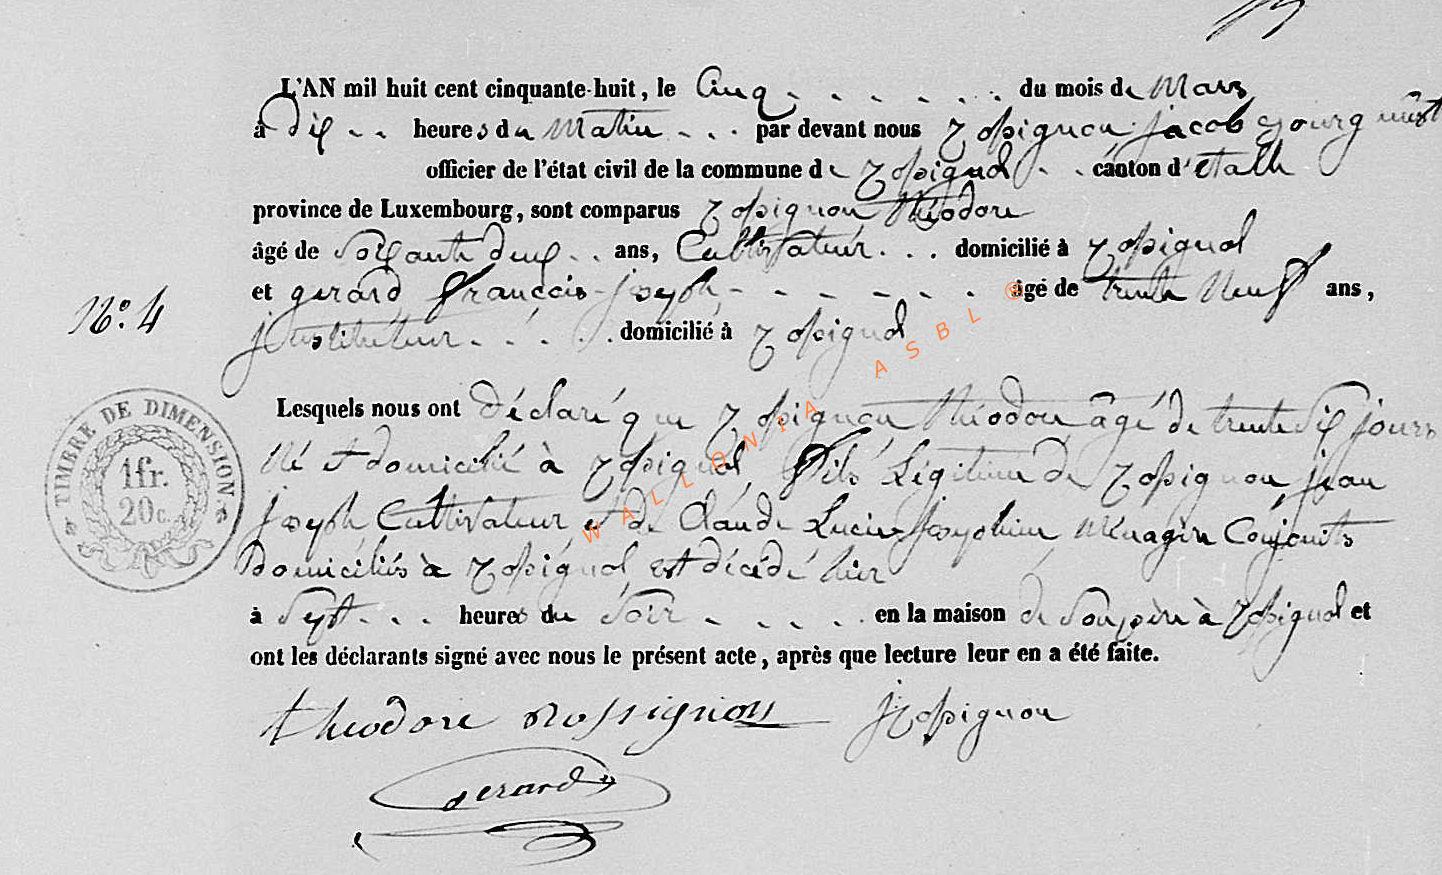 L'AN mil huit cent cinquante-huit, le Cinq du mois de Mars
à dix heures du Matin par devant nous Rossignon jacob
officier de l'état civil de la commune de Rossignol canton d'étalle
province de Luxembourg, sont comparus Rossignon théodore
âgé de Soixante deux ans, Cultivateur domicilié à Rossignol
et gerard francois joseph âgé de trente Neuf ans,
N°. 4
jnstituteur domicilié à Rossignol
WALLONIA ASBL ©
Lesquels nous ont déclaré que Rossignon théodore âgé de trente Six jours
TIMBRE DE DIMENSION
1 fr.
20 c.
Né et domicilié à Rossignol, fils Légitime de Rossignon, jean
joseph Cultivateur et de Claude Lucie josephine Ménagère Conjoints
domiciliés à Rossignol est décédé hier
à Sept heures du Soir en la maison de Son père à Rossignol et
ont les déclarants signé avec nous le présent acte, après que lecture leur en a été faite.
theodore Rossignon jRossignon
Gerard